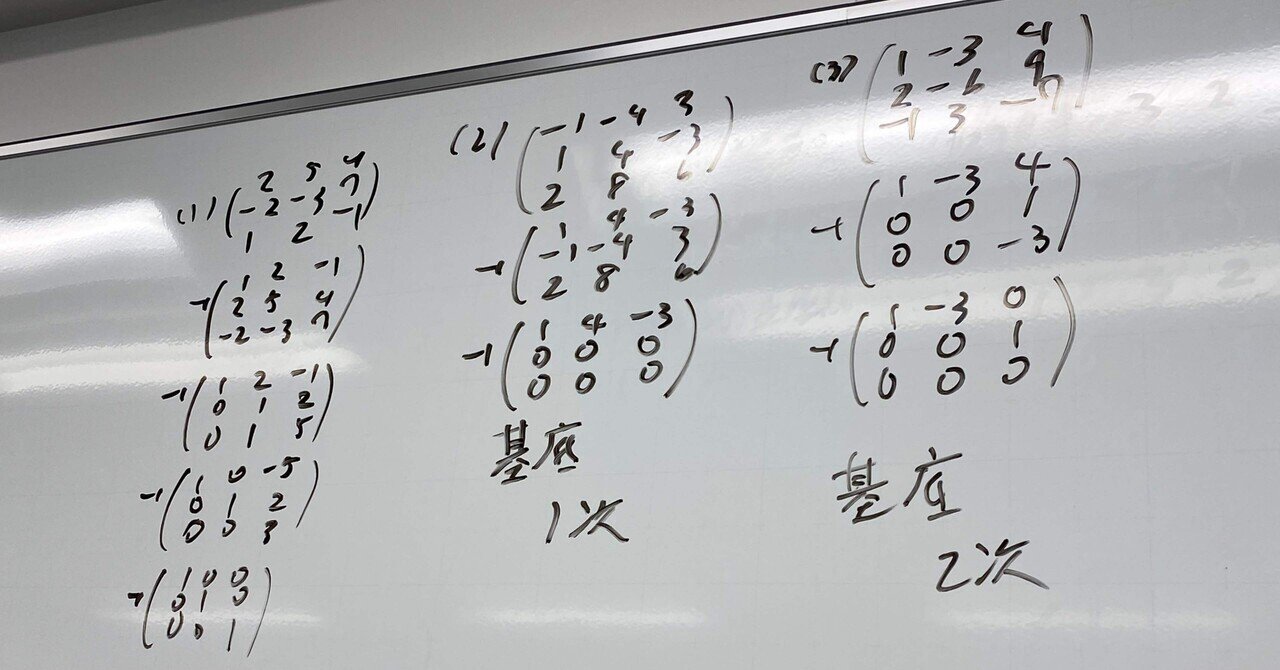 (1) ( 2 5 4
-2 -3 7
1 2 -1 )
→ ( 1 2 -1
2 5 4
-2 -3 7 )
→ ( 1 2 -1
0 1 2
0 1 5 )
→ ( 1 0 -5
0 1 2
0 0 3 )
→ ( 1 0 0
0 1 0
0 0 1 )
(2) ( -1 -4 3
1 4 -3
2 8 6 )
→ ( 1 4 -3
-1 -4 3
2 8 6 )
→ ( 1 4 -3
0 0 0
0 0 0 )
基底
1次
(3) ( 1 -3 4
2 -6 9
-1 3 -7 )
→ ( 1 -3 4
0 0 1
0 0 -3 )
→ ( 1 -3 0
0 0 1
0 0 0 )
基底
2次